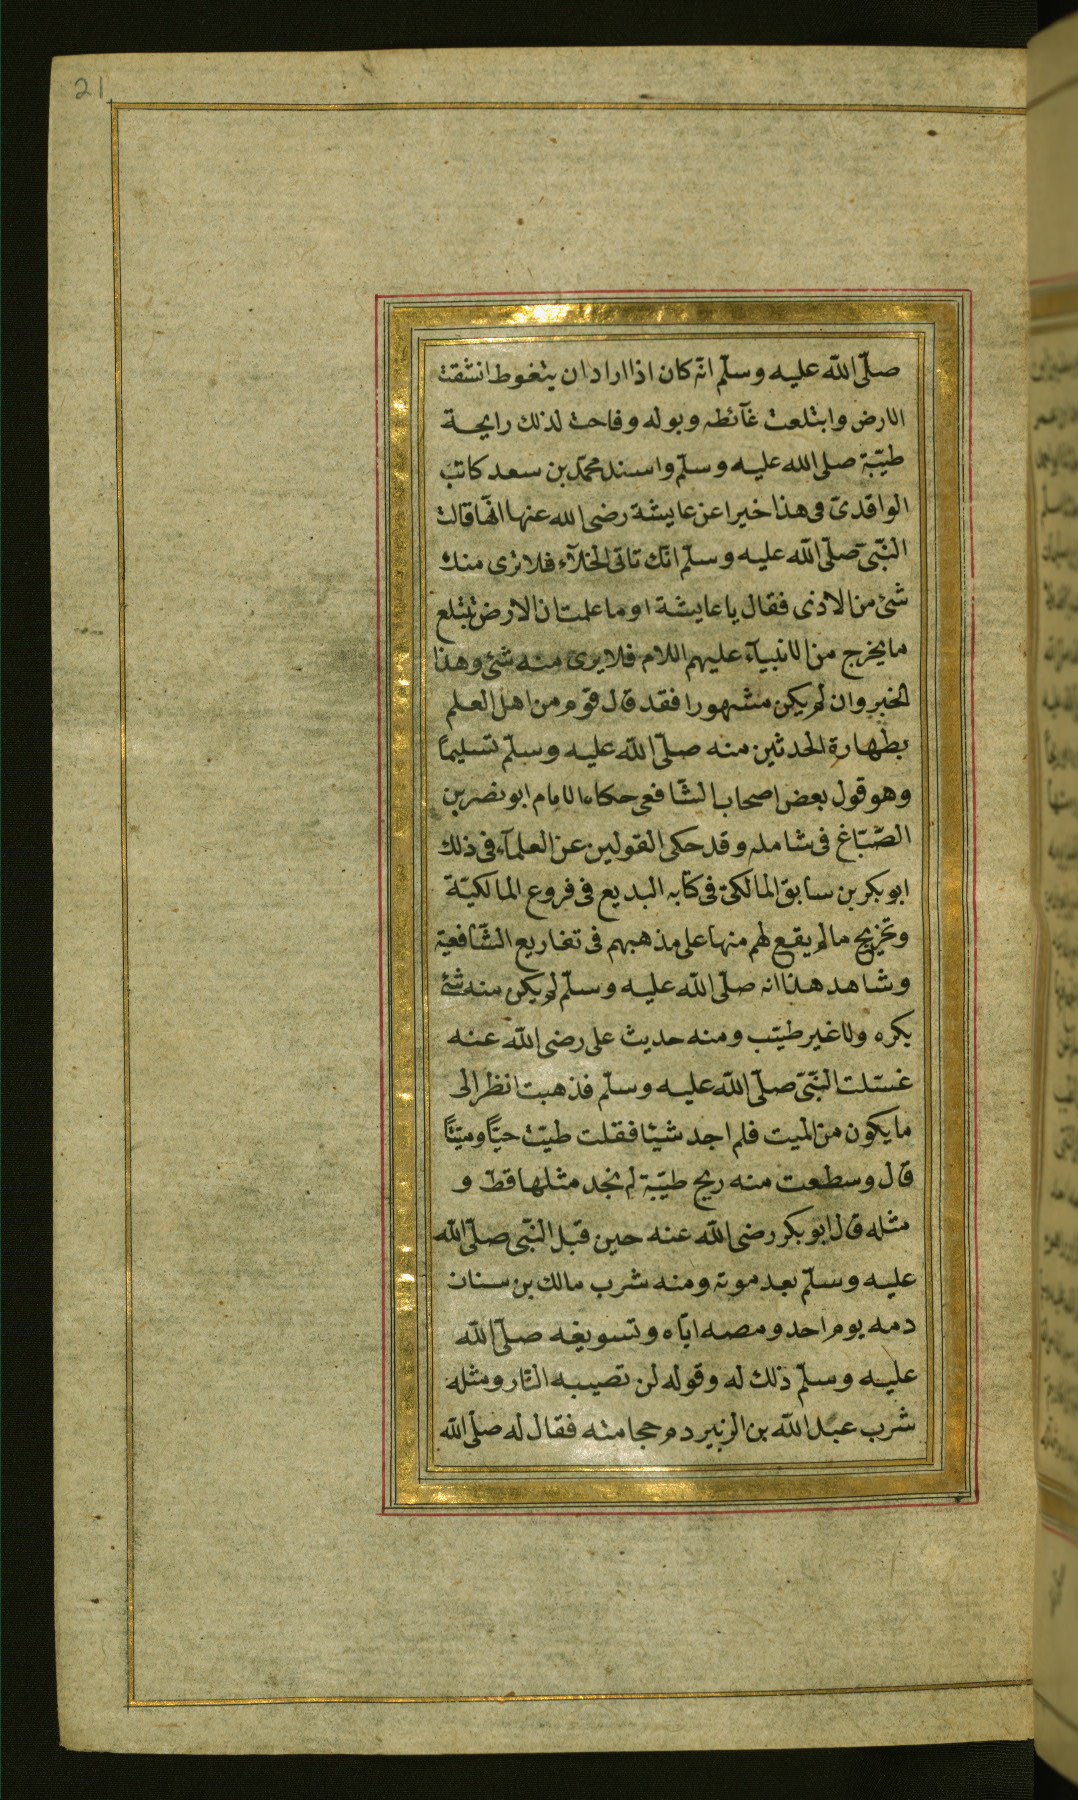 21
صلّى الله عليه وسلّم انّه كان اذا اراد ان يتغوط انشقت
الارض وابتلعت غآئطه وبوله وفاحت لذلك رايحة
طيّبة صلى الله عليه وسلّم واسند محمّد بن سعد كاتب
الواقدىّ فى هذا خيرا عن عايشة رضى الله عنها انّها قالت
النّبىّ صلّى الله عليه وسلّم انّك تاتى الخلآء فلا نرى منك
شئ من الاذى فقال يا عايشة اوما علمت ان الارض تبتلع
ما يخرج من الانبيآء عليهم اللام فلا يرى منه شئ وهذا
الخبر وان لم يكن مشهورا فقد قال قوم من اهل العلم
بطهارة الحدثين منه صلّى الله عليه وسلّم تسليماً
وهو قول بعض اصحاب الشّافعى حكاه الامام ابو نصر بن
الصّبّاغ فى شامله وقد حكى القولين عن العلمآء فى ذلك
ابو بكر بن سابق المالكىّ فى كتابه البديع فى فروع المالكيّة
وتخريج ما لم يقع لهم منها على مذهبهم فى تفاريع الشّافعيّة
وشاهد هذا انه صلّى الله عليه وسلّم لم يكن منه شئ
يكره ولا غير طيّب ومنه حديث على رضى الله عنه
غسّلت النّبىّ صلّى الله عليه وسلّم فذهبت انظر الى
ما يكون من الميت فلم اجد شيئا فقلت طيّبت حيّاً وميّتاً
قال وسطعت منه ريح طيّبة لم نجد مثلها قطّ و
مثله قال ابو بكر رضى الله عنه حين قبل النّبى صلّى الله
عليه وسلّم بعد موته ومنه شرب مالك بن سنان
دمه يوم احد ومصه ايّاه وتسويغه صلّى الله
عليه وسلّم ذلك له وقوله لن تصيبه النّار ومثله
شرب عبد الله بن الزبير دم حجامته فقال له صلّى الله